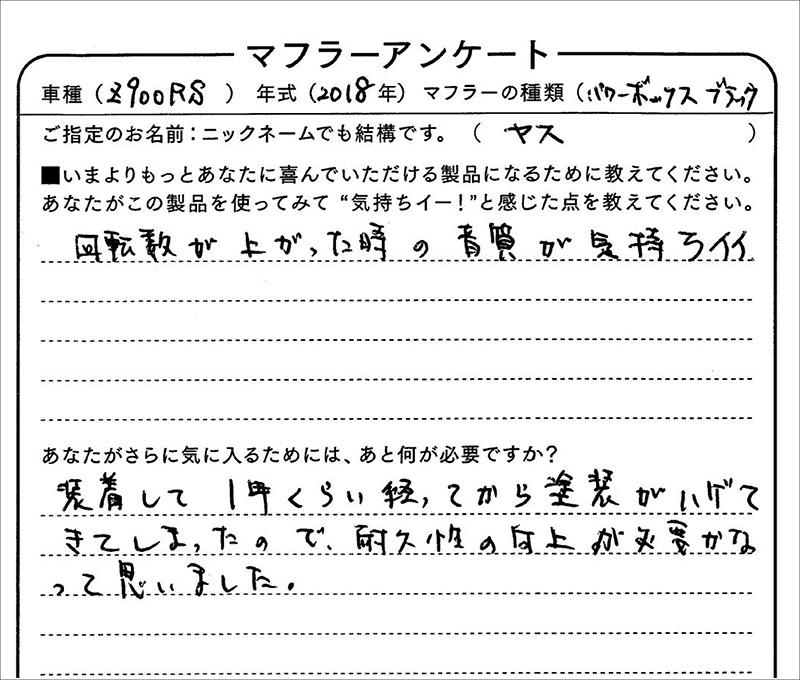 マフラーアンケート
車種（Z900RS） 年式（2018年） マフラーの種類（パワーボックスブラック
ご指定のお名前：ニックネームでも結構です。（ ヤス ）
■いまよりもっとあなたに喜んでいただける製品になるために教えてください。
あなたがこの製品を使ってみて“気持ちイー！”と感じた点を教えてください。
回転数が上がった時の音質が気持ちイイ
あなたがさらに気に入るためには、あと何が必要ですか？
装着して1年くらい経ってから塗装がハゲて
きてしまったので、耐久性の向上が必要かな
って思いました。